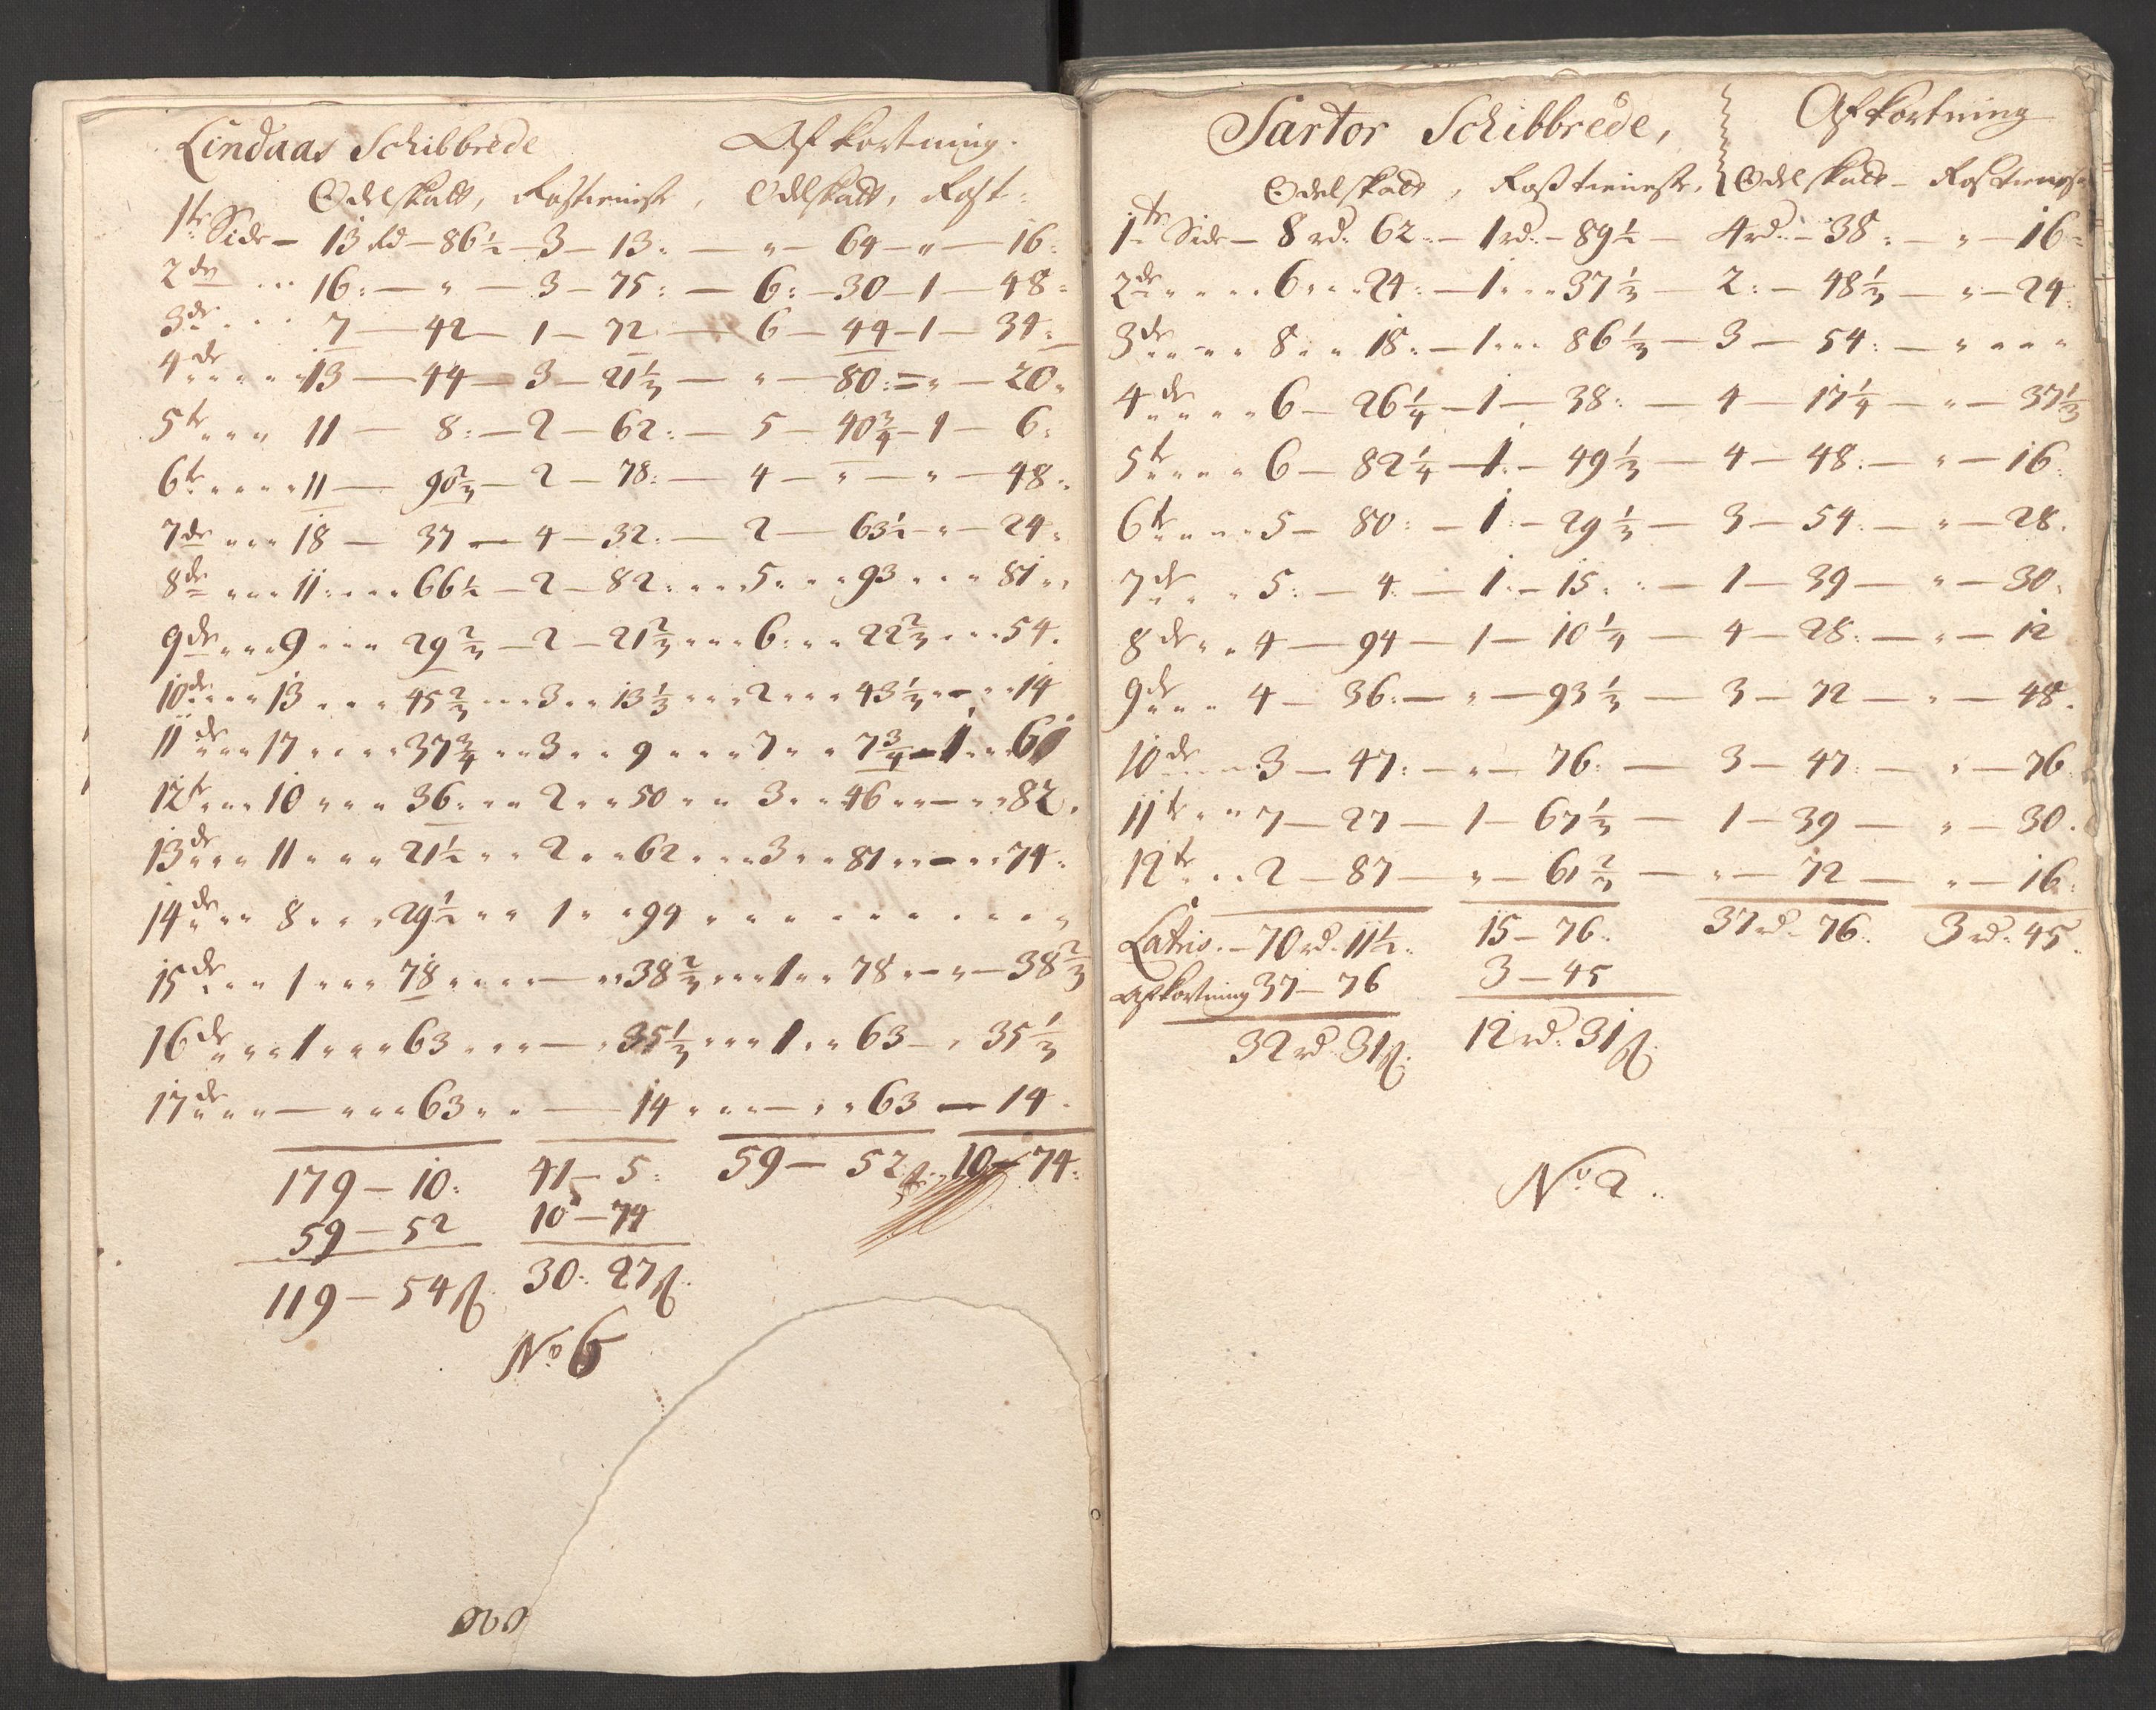 Lindaas Schibbrede Afkortning.
Odelskatt, Rostieniste, Odelskatt, Rost:
1te Side – 13 Rd – 86½ – 3 – 13: – " – 64 – " – 16:
2de ... 16: – " – 3 – 75: – 6: – 30 – 1 – 48:
3de ... 7 – 42 – 1 – 72 – 6 – 44 – 1 – 34:
4de ... 13 – 44 – 3 – 21⅓ – " – 80: – " – 20:
5te ... 11 – 8: – 2 – 62: – 5 – 40¾ – 1 – 6:
6te ... 11 – 90⅔ – 2 – 78: – 4 – " – " – 48:
7de ... 18 – 37 – 4 – 32: – 2 – 63½ – " – 24:
8de ... 11 ... 66½ – 2 – 82: ... 5 ... 93 ... 81
9de ... 9 ... 29⅔ – 2 – 21⅔ ... 6: ... 22⅔ ... 54.
10de ... 13 ... 45⅔ ... 3 ... 13⅓ ... 2 ... 43⅓ – 14
11de ... 17 ... 37¾ ... 3 ... 9 ... 7 ... 7¾ – 1 ... 6
12te ... 10 ... 36: ... 2 ... 50 ... 3 ... 46 – 82.
13de ... 11 ... 21½ ... 2 ... 62 ... 3 ... 81 – 74:
14de ... 8 ... 29½ ... 1 ... 94 ...
15de ... 1 ... 78 ... – 38⅔ ... 1 ... 78 – " – 38⅔
16de ... 1 ... 63 ... – 35⅓ ... 1 ... 63 – 35⅓
17de ... – ... 63 ... – 14 ... – ... 63 – 14.
179 – 10: 41 – 5: 59 – 52ß. 10 – 74:
59 – 52 10 – 74
119 – 54ß. 30: 27ß.
No 6
Sartor Schibbrede, Afkortning
Odelskatt, Rosstieneste, Odelskatt – Rostieneste
1te Side – 8 rd. 62 – 1 rd. – 89½ – 4 rd. – 38: – " – 16:
2de ... 6 ... 24: – 1 ... 37⅓ – 2: – 48⅓ – " – 24:
3de ... 8 ... 18: – 1 ... 86⅓ – 3 – 54: – "
4de ... 6 – 26¼ – 1 – 38: – 4 – 17¼ – " – 37⅓
5te ... 6 – 82¼ – 1. – 49⅓ – 4 – 48: – " – 16:
6te ... 5 – 80: – 1: – 29⅓ – 3 – 54: – " – 28.
7de ... 5: – 4: – 1: – 15: – 1 – 39 – " – 30:
8de ... 4 – 94 – 1 – 10¼ – 4 – 28: – " – 12
9de ... 4 – 36: – " – 93⅓ – 3 – 72 – " – 48.
10de ... 3 – 47: – " – 76: – 3 – 47: – " – 76.
11te ... 7 – 27 – 1 – 67⅓ – 1 – 39 – " – 30.
12te ... 2 – 87 – " – 61⅔ – " – 72 – " – 16:
Latris. – 70 rd. 11½: 15 – 76: 37 rd. 76: 3 rd. 45.
Afkortning 37 – 76 3 – 45
32 rd. 31ß. 12 rd. 31ß.
No 2.